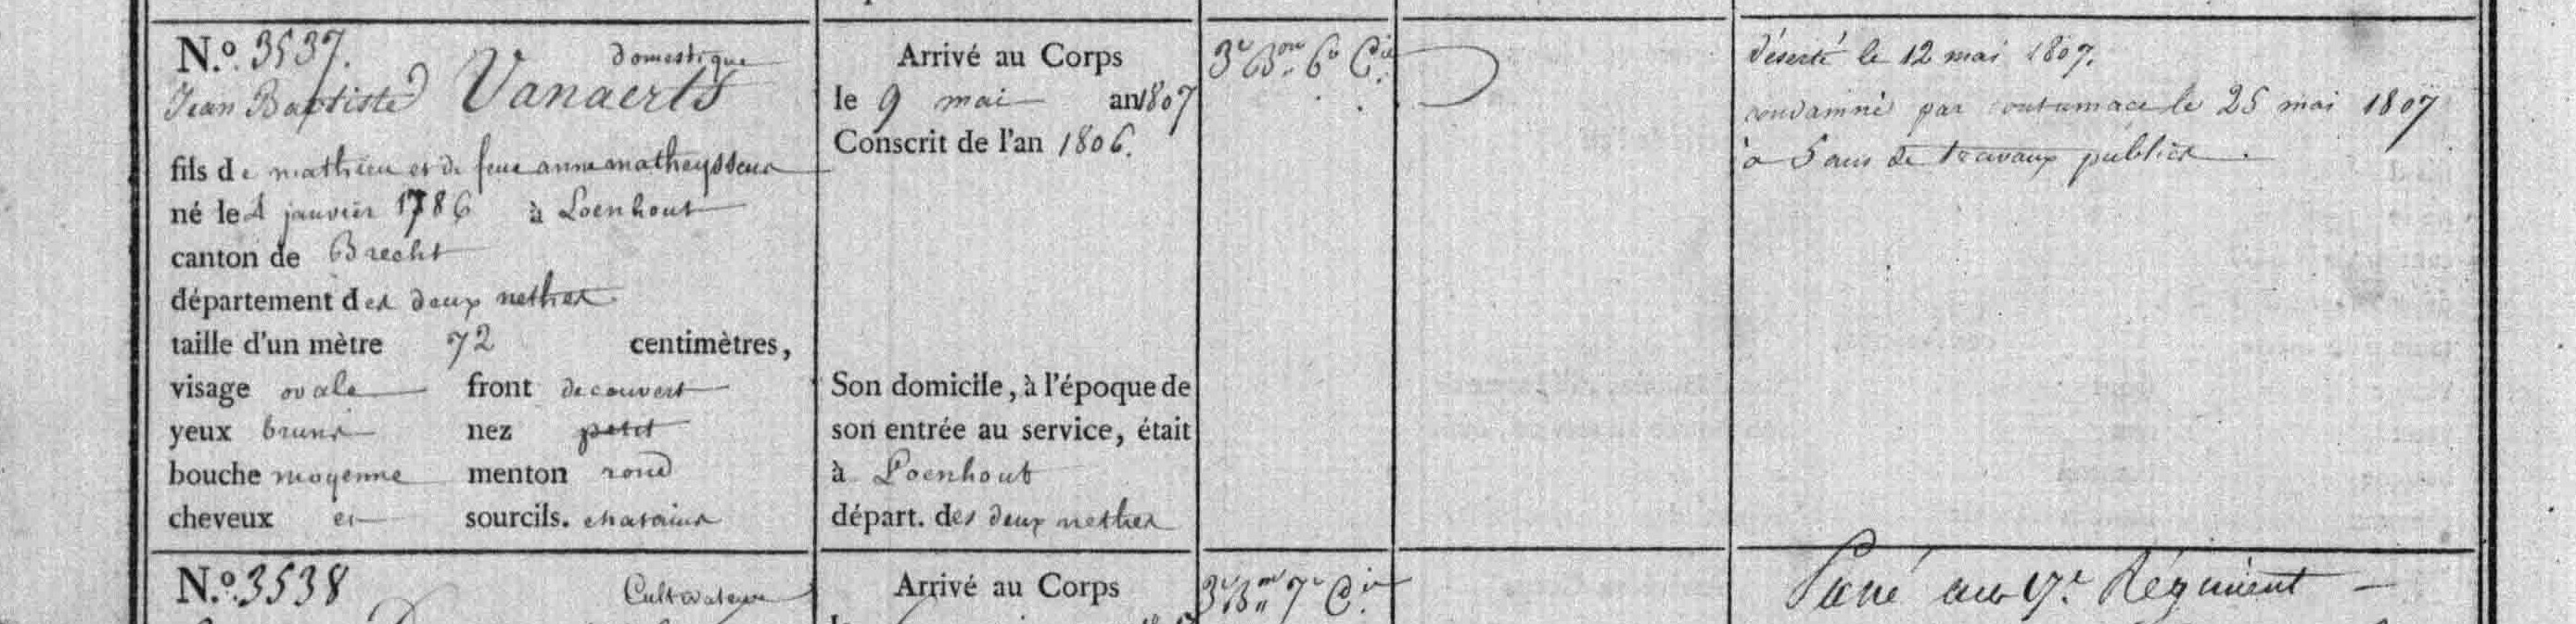 N.o 3537. domestique
Jean Baptiste Vanaerts
fils de mathieu et de feue anne matheyssens
né le 4 janvier 1786 à Loenhout
canton de Brecht
département des deux nethes
taille d'un mètre 72 centimètres,
visage ovale front decouvert
yeux bruns nez petit
bouche moyenne menton rond
cheveux et sourcils. chatains
Arrivé au Corps
le 9 mai an 1807
Conscrit de l'an 1806.
Son domicile, à l'époque de
son entrée au service, était
à Loenhout
départ. des deux nethes
3e Bon 6e Cie
déserté le 12 mai 1807.
condamné par contumace le 25 mai 1807
à 5 ans de travaux publics.
N.o 3538 Cultivateur
Arrivé au Corps
3e Bon 7e Cie
Passé au 17e Régiment